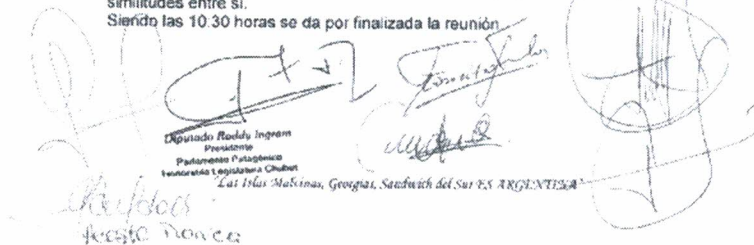 similitudes entre sí.
Siendo las 10:30 horas se da por finalizada la reunión
Diputado Roddy Ingram
Presidente
Parlamento Patagónico
Honorable Legislatura Chubut
"Las Islas Malvinas, Georgias, Sandwich del Sur ES ARGENTINA"